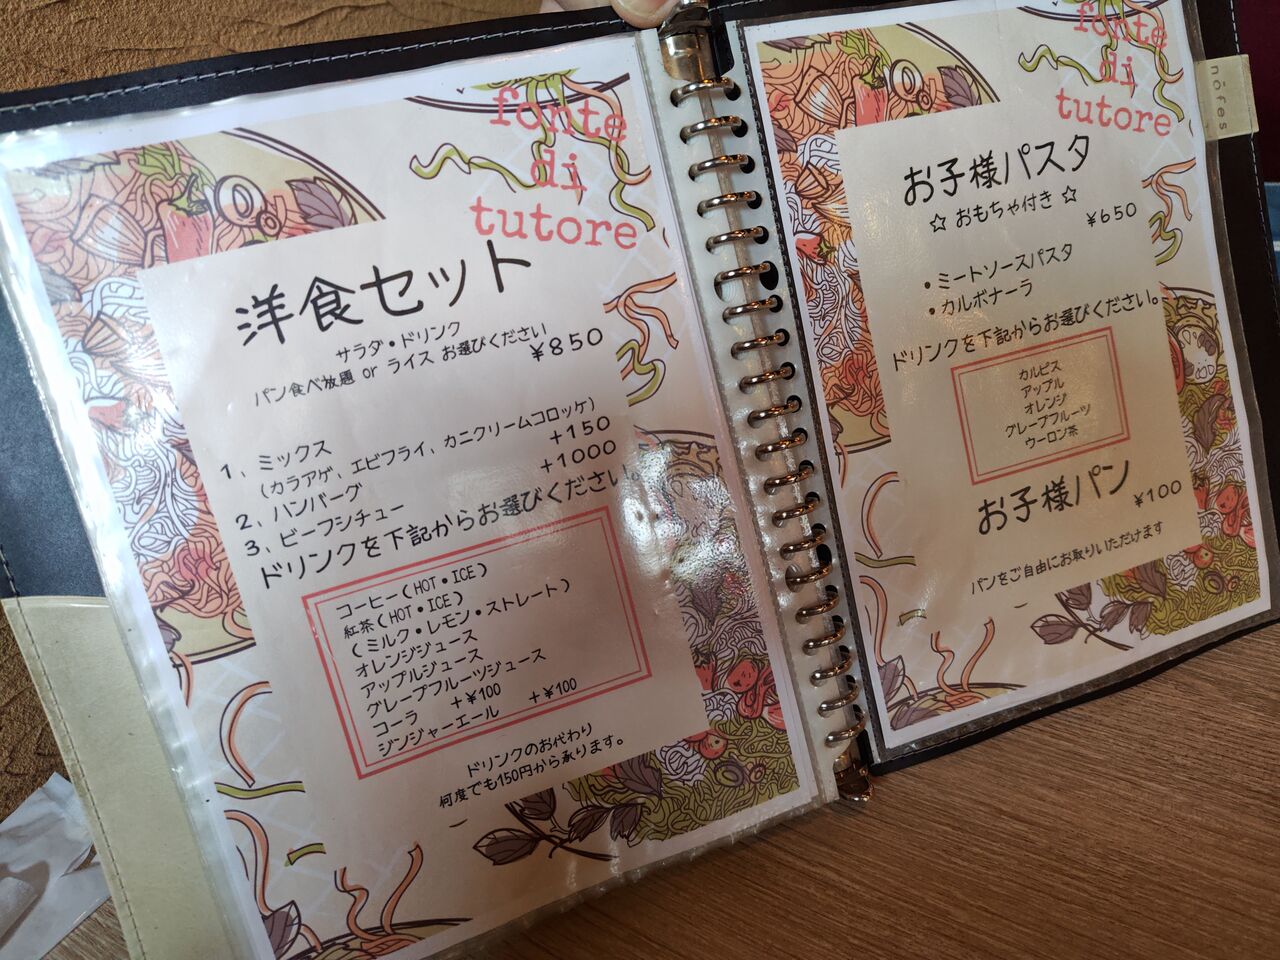 fonte
di
tutore
洋食セット
サラダ・ドリンク
パン食べ放題 or ライス お選びください
¥850
1、ミックス
(カラアゲ、エビフライ、カニクリームコロッケ)
2、ハンバーグ +150
3、ビーフシチュー +1000
ドリンクを下記からお選びください。
コーヒー(HOT・ICE)
紅茶(HOT・ICE)
(ミルク・レモン・ストレート)
オレンジジュース
アップルジュース
グレープフルーツジュース
コーラ +¥100
ジンジャーエール +¥100
ドリンクのお代わり
何度でも150円から承ります。
fonte
di
tutore
nōfes
お子様パスタ
☆ おもちゃ付き ☆
¥650
・ミートソースパスタ
・カルボナーラ
ドリンクを下記からお選びください。
カルピス
アップル
オレンジ
グレープフルーツ
ウーロン茶
お子様パン
¥100
パンをご自由にお取りいただけます